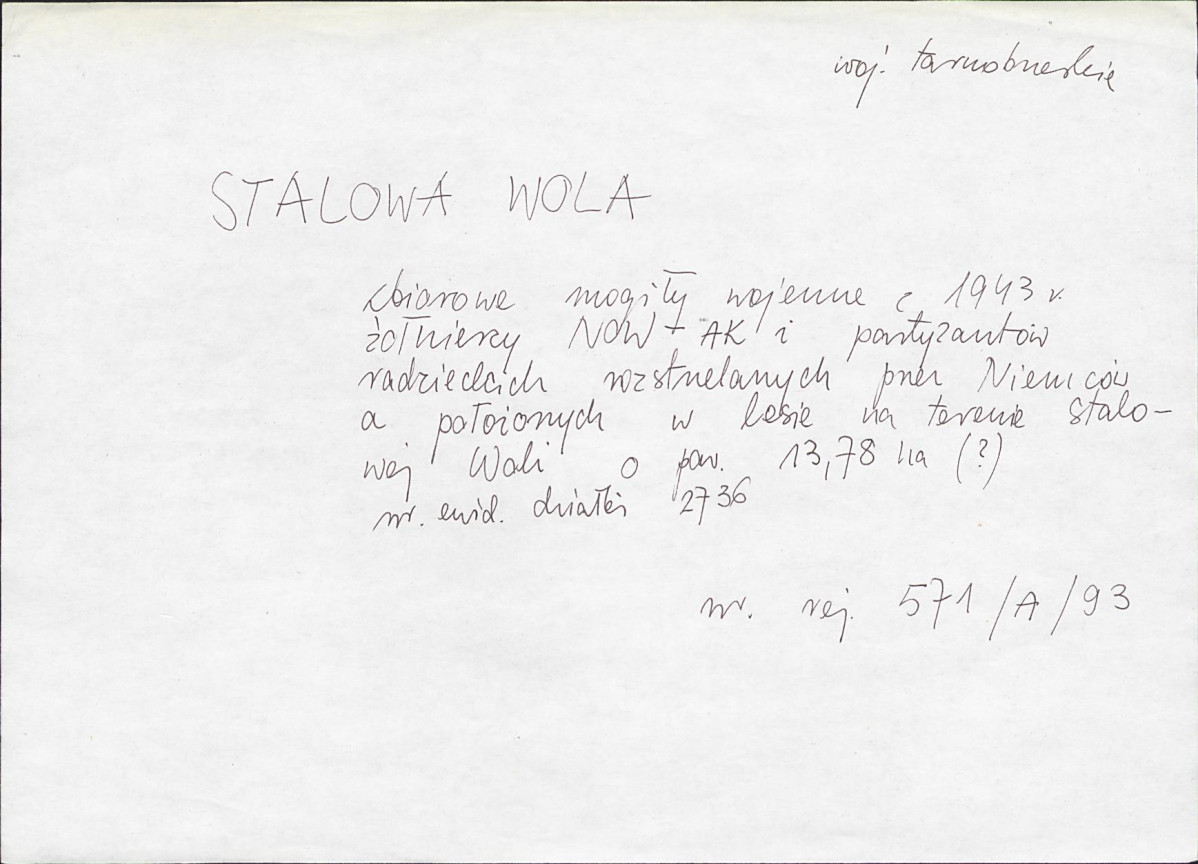 woj. tarnobrzeskie
STALOWA WOLA
zbiorowe mogiły wojenne z 1943 r.
żołnierzy NOW - AK i partyzantów
radzieckich rozstrzelanych przez Niemców
a położonych w lesie na terenie Stalo-
wej Woli o pow. 13,78 ha (?)
nr. ewid. działki 2736
nr. rej. 571/A/93